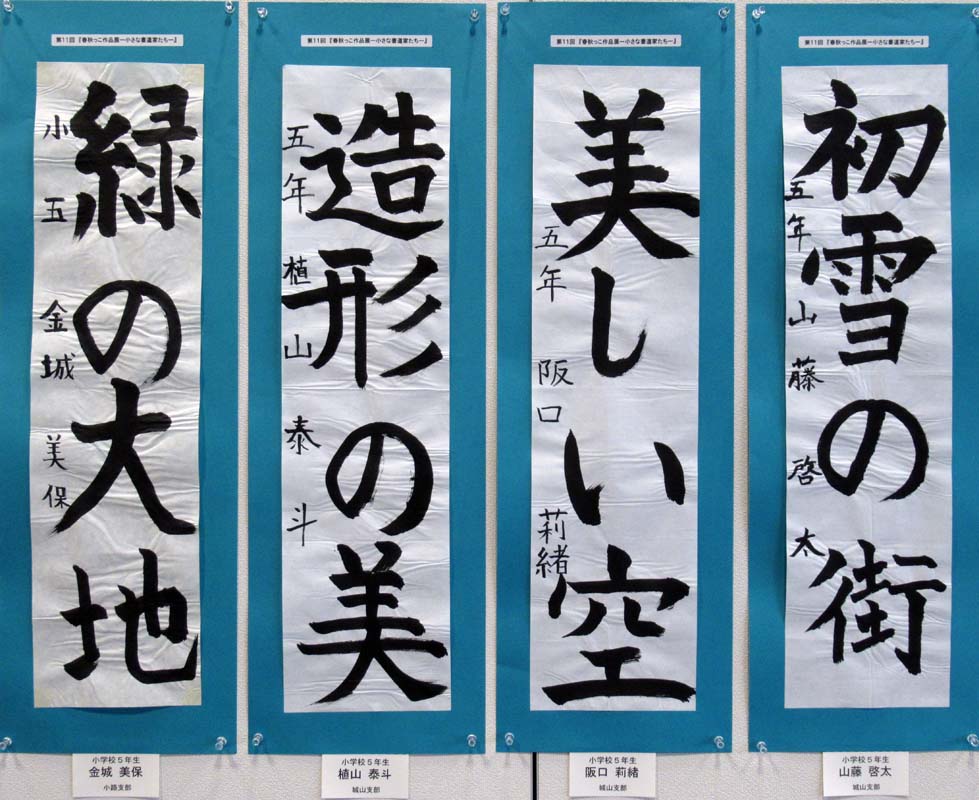 第11回『春秋っこ作品展ー小さな書道家たちー』
初雪の街
五年山藤啓太
小学校5年生
山藤 啓太
城山支部
第11回『春秋っこ作品展ー小さな書道家たちー』
美しい空
五年 阪口 莉緒
小学校5年生
阪口 莉緒
城山支部
第11回『春秋っこ作品展ー小さな書道家たちー』
造形の美
五年 植山 泰斗
小学校5年生
植山 泰斗
城山支部
第11回『春秋っこ作品展ー小さな書道家たちー』
緑の大地
小五 金城 美保
小学校5年生
金城 美保
小路支部